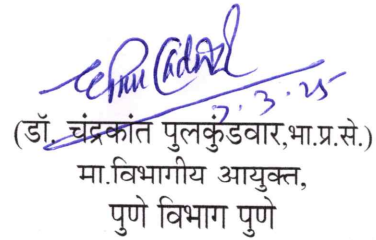 7.3.25
(डॉ. चंद्रकांत पुलकुंडवार,भा.प्र.से.)
मा.विभागीय आयुक्त,
पुणे विभाग पुणे